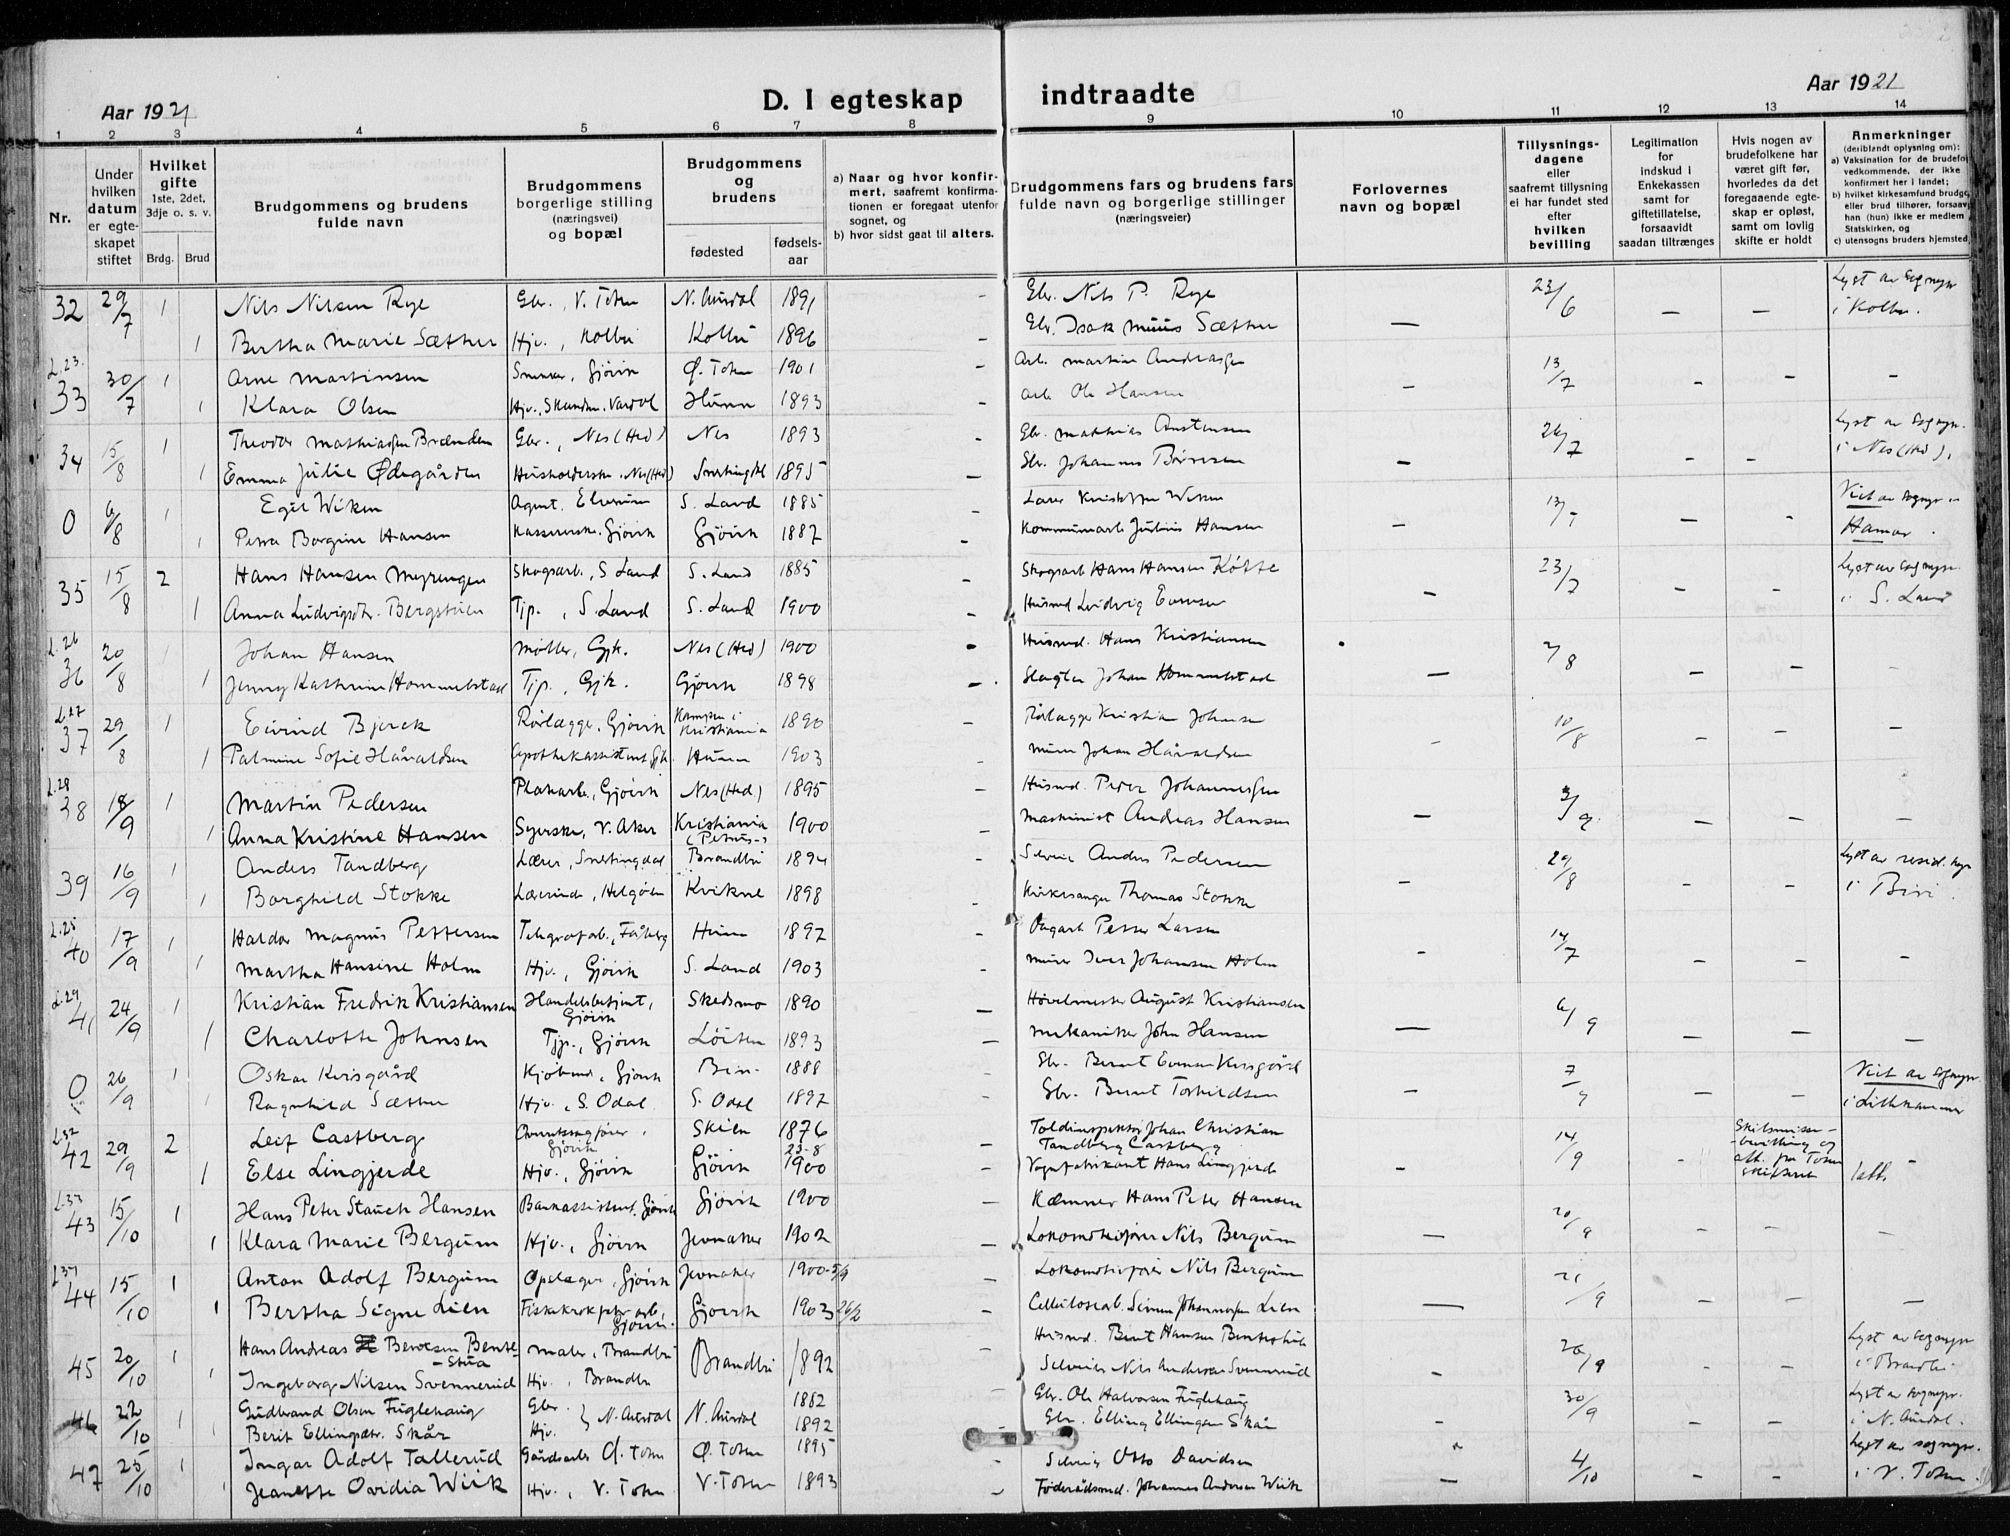 Aar 1921
D. I egteskap indtraadte
Aar 1921
1 2 3 4 5 6 7 8 9 10 11 12 13 14
Nr.
Under hvilken datum er egteskapet stiftet
Hvilket gifte 1ste, 2det, 3dje o. s. v.
Brdg. Brud
Brudgommens og brudens fulde navn
Brudgommens borgerlige stilling (næringsvei) og bopæl
Brudgommens og brudens
fødested
fødselsaar
a) Naar og hvor konfirmert, saafremt konfirmationen er foregaat utenfor sognet, og
b) hvor sidst gaat til alters.
Brudgommens fars og brudens fars fulde navn og borgerlige stillinger (næringsveier)
Forlovernes navn og bopæl
Tillysningsdagene eller saafremt tillysning ei har fundet sted efter hvilken bevilling
Legitimation for indskud i Enkekassen samt for giftetillatelse, forsaavidt saadan tiltrænges
Hvis nogen av brudefolkene har været gift før, hvorledes da det foregaaende egteskap er opløst, samt om lovlig skifte er holdt
Anmerkninger (deriblandt oplysning om):
a) Vaksination for de brudefo
vedkommende, der ikke konfirmert her i landet;
b) hvilket kirkesamfund brudgo
eller brud tilhører, forsaav
han (hun) ikke er medlem
Statskirken, og
c) utensogns bruders hjemsted
32 29/7 1 Nils Nilsen Rye Gbr., V. Toten N. Aurdal 1891 – Gbr. Nils P. Rye 23/6 Lyst av sognepr.
1 Bertha Marie Sæther Hjv., Kolbu Kolbu 1896 – Gbr. Isak Sæther – – – i Kolbu.
L. 23.
33 30/7 1 Arne Martinsen Snekker, Gjøvik Ø. Toten 1901 Arb. Martin Andreasen 13/7 – –
1 Klara Olsen Hjv., Vardal Hunn 1893 – Arb. Ole Hansen – –
34 15/8 1 Theodor Mathiasen Brænden Gbr., Nes (Hed) Nes 1893 – Gbr. Mathias Amstensen 26/7 Lyst av sognepr.
1 Emma Julie Ødegården Husholderske, Nes (Hed) Snertingdal 1895 – Gbr. Johannes – – – i Nes (Hed).
0 6/8 1 Egil Wiken Agent, Elverum S. Land 1885 Lærer Kristoffer Wiken 13/7 Viet av sognepr. i
1 Petra Borgine Hansen Kassererske, Gjøvik Gjøvik 1887 – Kommunearb. Julius Hansen – – – Hamar.
35 15/8 2 Hans Hansen Myrengen Skogsarb., S. Land S. Land 1885 – Skogsarb. Hans Hansen Kølte 23/7 Lyst av sognepr.
1 Anna Ludvigsdtr. Bergstuen Tjp., S. Land S. Land 1900 – Husmd. Ludvig Evensen – – – i S. Land
L. 26
36 20/8 1 Johan Hansen Møller, Gjk. Nes (Hed) 1900 – Husmd. Hans Kristiansen 2/8
1 Jenny Kathrine Hommelstad Tjp., Gjk. Gjøvik 1898 – Slagter Johan Hommelstad – – –
L. 27
37 29/8 1 Eivind Bjerck Rørlægger, Gjøvik Kampen i Kristiania 1890 – Rørlægger Kristian Johnsen 10/8 –
1 Palmine Sofie Håvaldsen Apothekassistent Gjk. Hunn 1903 Murer Johan Håvaldsen – – –
L. 28
38 18/9 1 Martin Pedersen Plankarb., Gjøvik Nes (Hed) 1895 Husmd. Peder Johannessen 3/9
1 Anna Kristine Hansen Syerske, V. Aker Kristiania (Petrus-) 1900 Maskinist Andreas Hansen – – – –
39 16/9 1 Anders Tandberg Lærer, Snertingdal Brandbu 1894 – Anders Pedersen 29/8 Lyst av resid. kap.
1 Borghild Stokke Lærerinde, Helgøen Kvikne 1898 – Kirkesanger Thomas Stokke – – – i Biri.
L. 25
40 17/9 1 Haldor Magnus Pettersen Telegrafarb., Fåberg Hunn 1892 – Petter Larsen 14/7
1 Martha Hansine Holm Hjv., Gjøvik S. Land 1903 – Murer Iver Johansen Holm – – – –
L. 29
41 24/9 1 Kristian Fredrik Kristiansen Handelsbetjent, Gjøvik Skedsmo 1890 – Høvelmester August Kristiansen 6/9
1 Charlotte Johnsen Tjp., Gjøvik Løiten 1893 – Mekaniker John Hansen – – – –
0 26/9 1 Oskar Kirsgård Kjøbmd., Gjøvik Biri 1888 Gbr. Bernt Evensen Kirsgård 7/9 Viet av sognepr.
1 Ragnhild Sæther Hjv., S. Odal S. Odal 1892 Gbr. Bernt Torkildsen – – – i Lillehammer
L. 32
42 29/9 2 Leif Castberg Overretssagfører, Gjøvik Skien 1876 – Toldinspektør Johan Christian Tandberg Castberg 14/9 Skilsmisse-bevilling og att. fra Toten skifteret
1 Else Lingjerde Hjv., Gjøvik Gjøvik 23-8 1900 Vognfabrikant Hans Lingjerde – – – 1 att.
L. 33
43 15/10 1 Hans Peter Stauch Hansen Bankassistent, Gjøvik Gjøvik 1900 Kæmner Hans Peter Hansen 20/9
1 Klara Marie Bergum Hjv., Gjøvik Jevnaker 1902 – Lokomotivfører Nils Bergum – – – –
L. 34
44 15/10 1 Anton Adolf Bergum Oplager, Gjøvik Jevnaker 1900 5/9 Lokomotivfører Nils Bergum 21/9
1 Bertha Signe Lien Fiskekrokfabr.arb., Gjøvik. Gjøvik 1903 26/2 – Cellulosearb. Simen Johannessen Lien – – – –
45 20/10 1 Hans Andreas Berntsen Bente-stua Maler, Brandbu Brandbu 1892 Husmd. Bernt Hansen Bentestua 26/9 Lyst av sognepr.
1 Ingeborg Nilsen Svennerud Hjv., Brandbu Nils Andersen Svennerud – – – i Brandbu
46 22/10 1 Gudbrand Olsen Fuglehaug Gbr. } N. Aurdal N. Aurdal 1882 Gbr. Ole Halvorsen Fuglehaug 30/9 Lyst av sognepr.
1 Berit Ellingsdtr. Skår Hjv. 1892 Gbr. Elling Ellingsen Skår – – – i N. Aurdal.
47 25/10 1 Ingar Adolf Tallerud Gårdsarb. Ø. Toten Ø. Toten 1895 Otto Davidsen 4/10 Lyst av sognepr.
1 Jeanette Ovidia Wiik Hjv., V. Toten V. Toten 1893 – Føderådsmd. Johannes Andersen Wiik – – – i V. Toten.